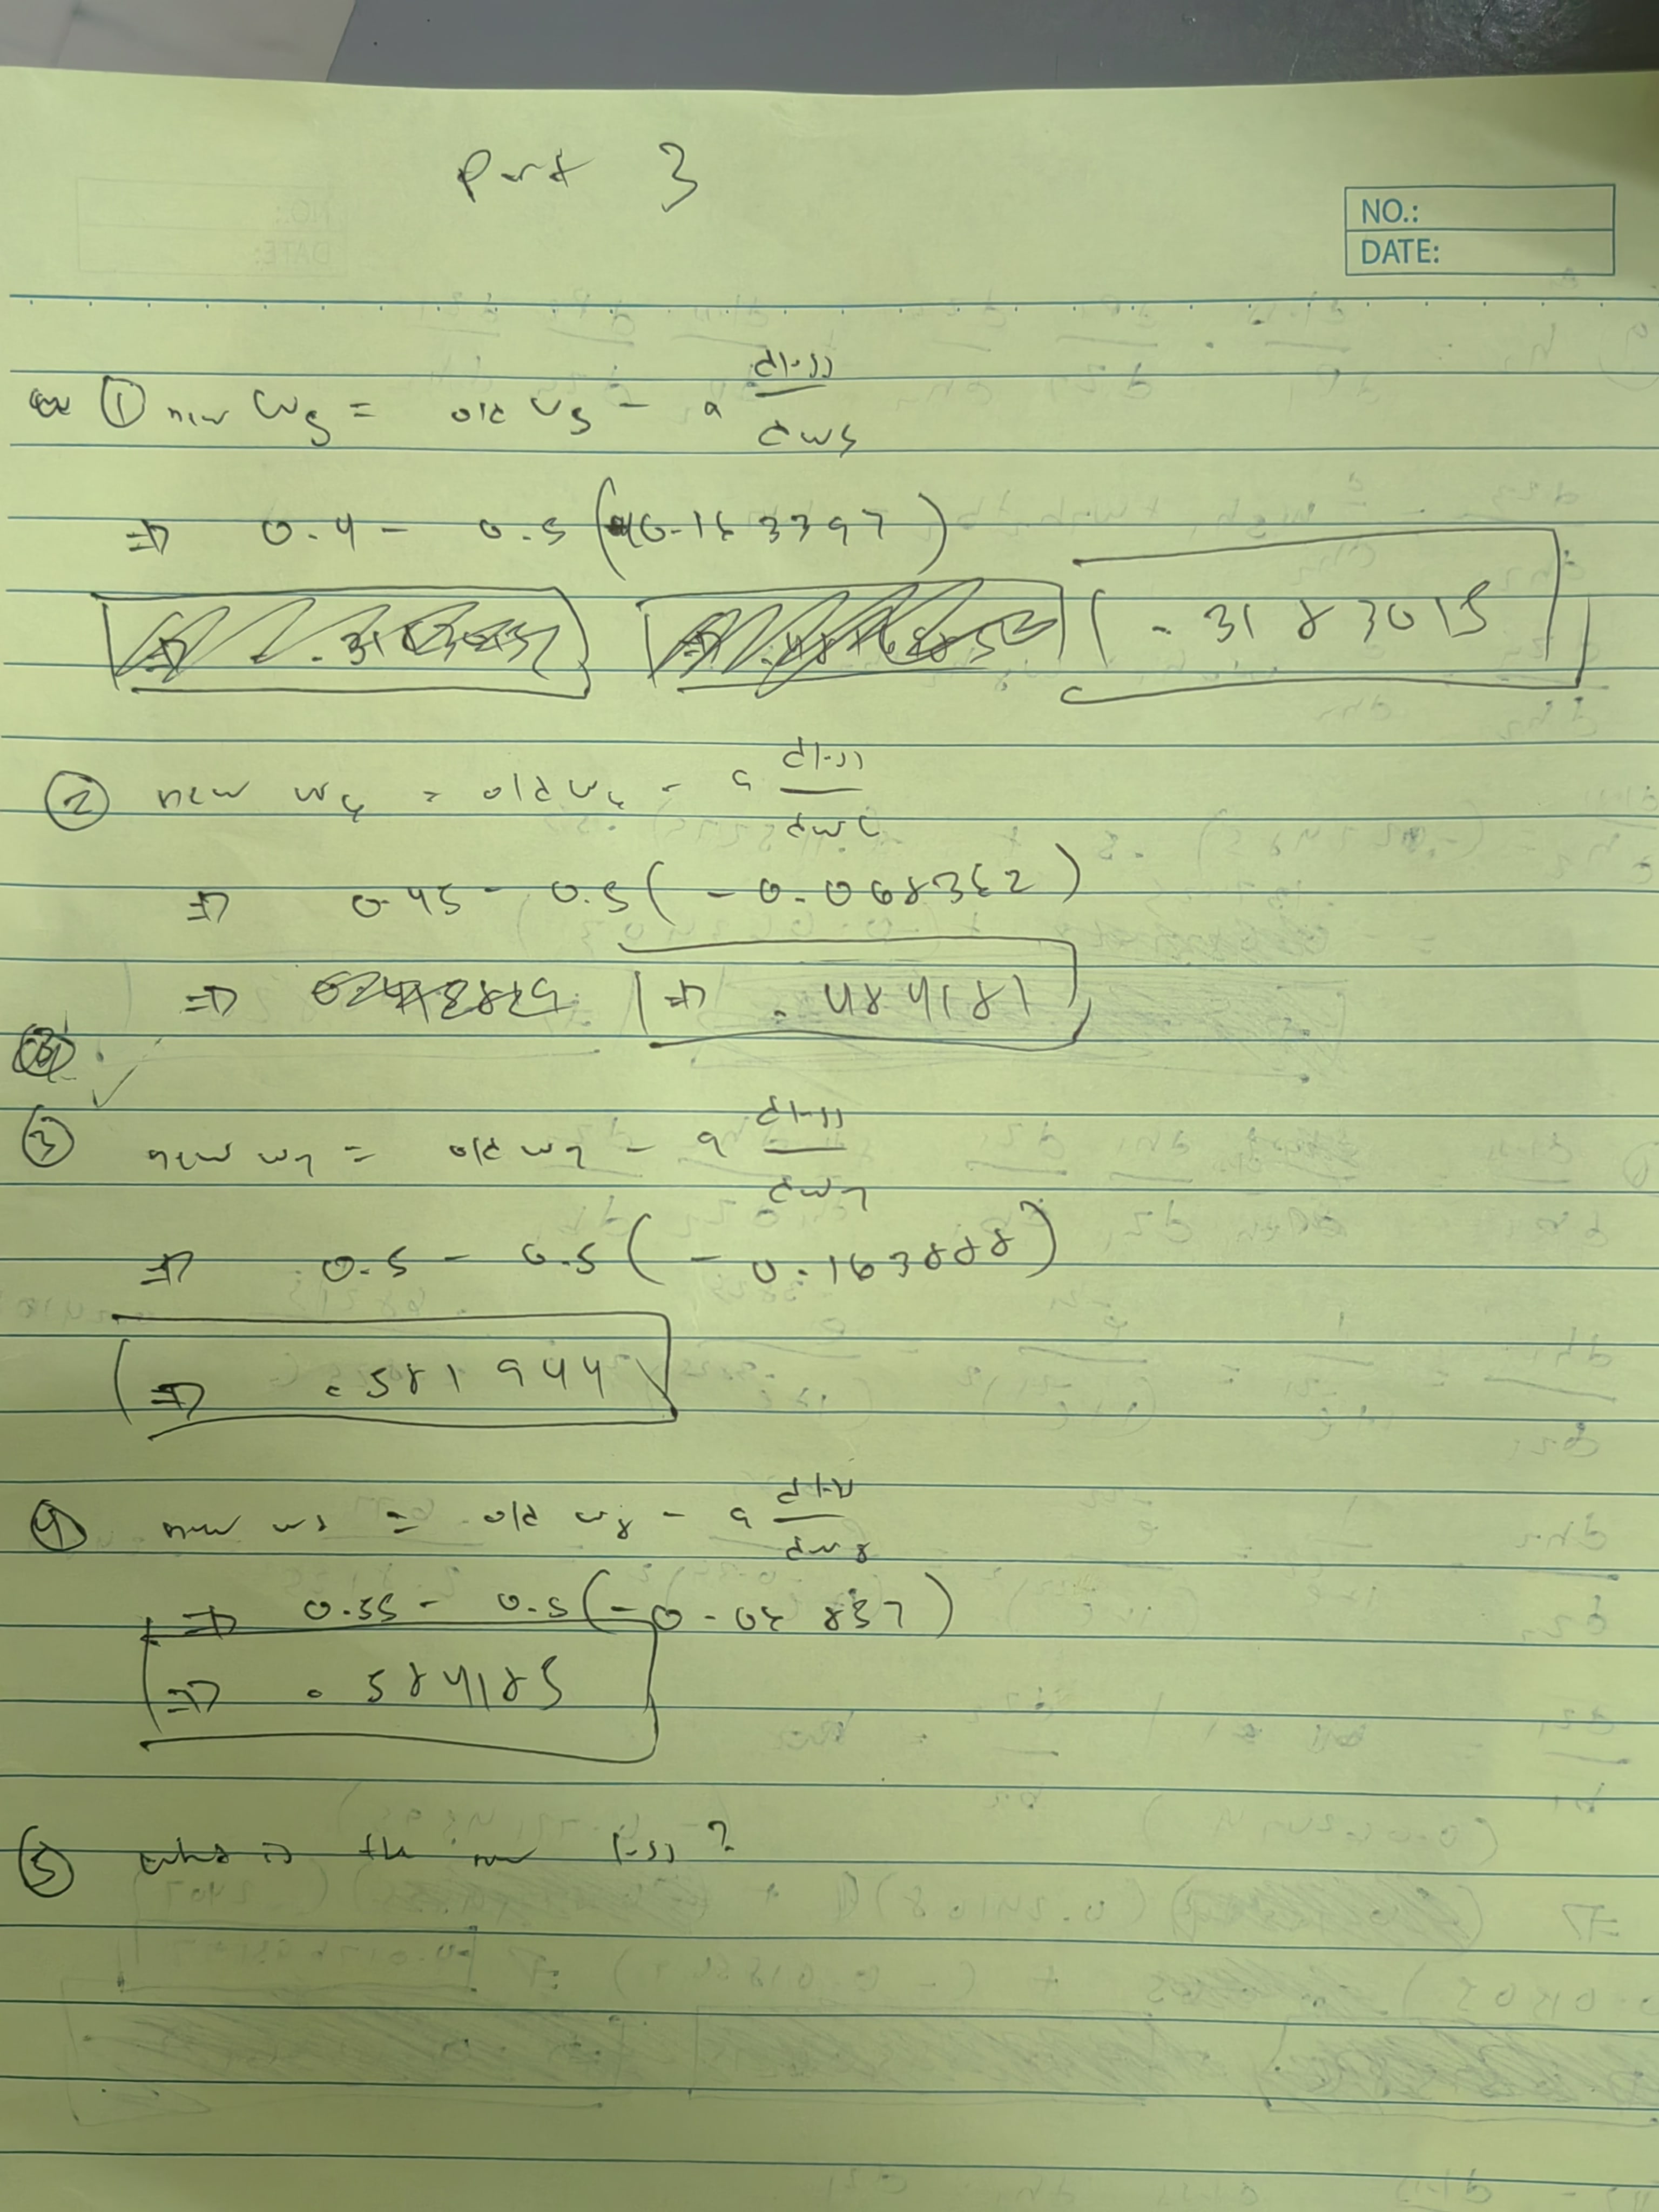 Part 3
NO.:
DATE:
① new w5 = old w5 - a dloss/dw5
⇒ 0.4 - 0.5 (0.163397)
.3183015
② new w6 = old w6 - a dloss/dw6
⇒ 0.45 - 0.5 (-0.068362)
⇒
⇒ .484181
③ new w7 = old w7 - a dloss/dw7
⇒ 0.5 - 0.5 (-0.163888)
⇒ .581944
④ new w8 = old w8 - a dloss/dw8
⇒ 0.55 - 0.5 (-0.06837)
⇒ .584185
⑤ what is the new loss?